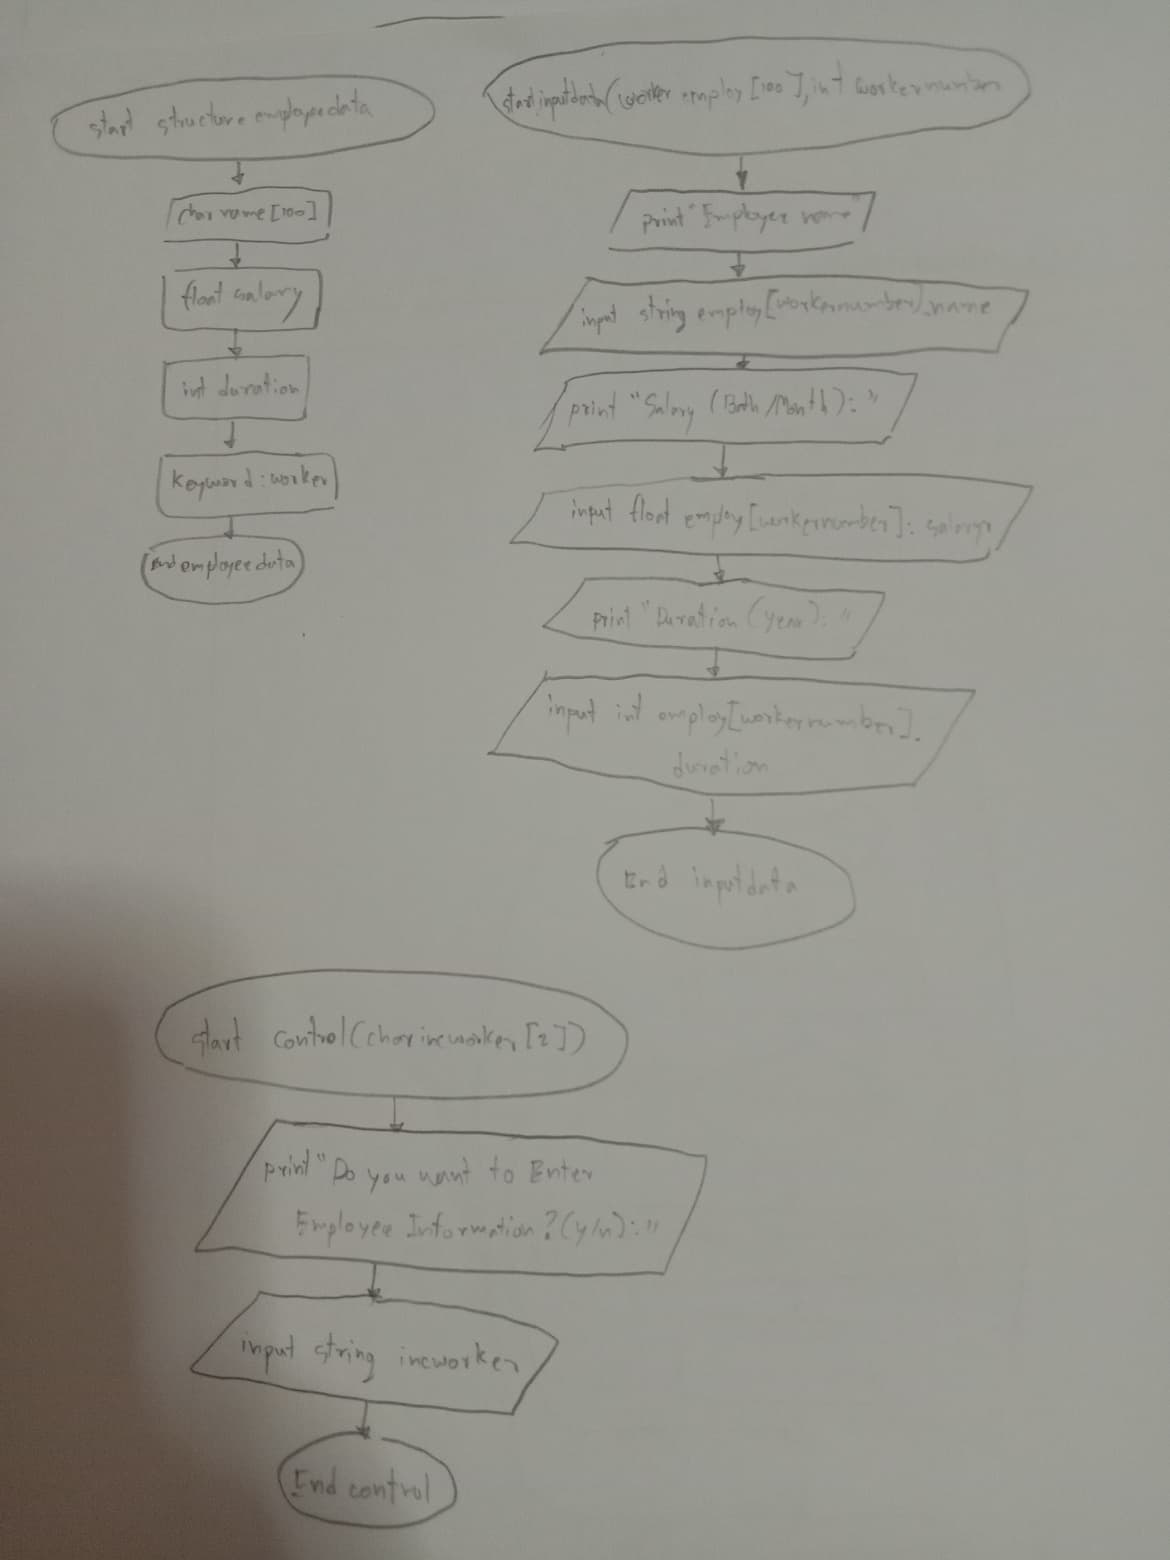 start structure employeedata
char name [100]
float salary
int duration
keyword : worker
End employeedata
start inputdata (worker employ [100], int workernumber
print "Employee name"
input string employ [workernumber].name
print "Salary (Bath /Month) : "
input float employ [workernumber]. salary
print "Duration (year) : "
input int employ [workernumber].
duration
End inputdata
start control (char incworker [2])
print "Do you want to Enter
Employee Information ? (y/n) : "
input string incworker
End control